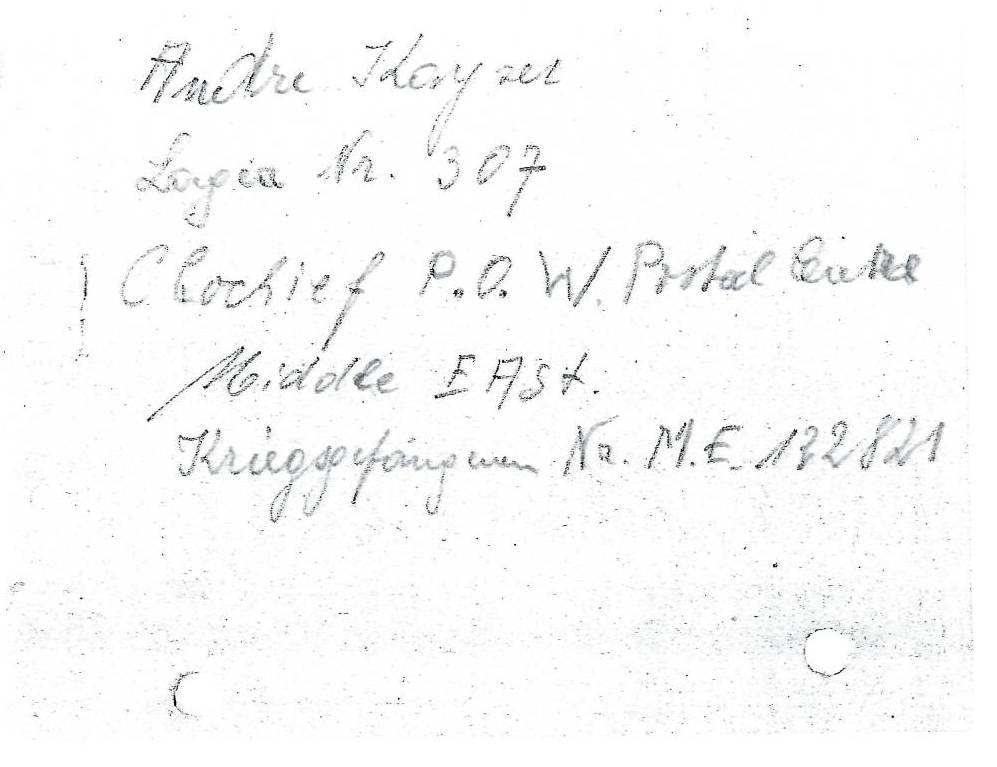 Andre Kayser
Lager Nr. 307
Chochief P.O.W. Postal Centre
Middle EASt.
Kriegsgefangenen Nr. M.E. 132821